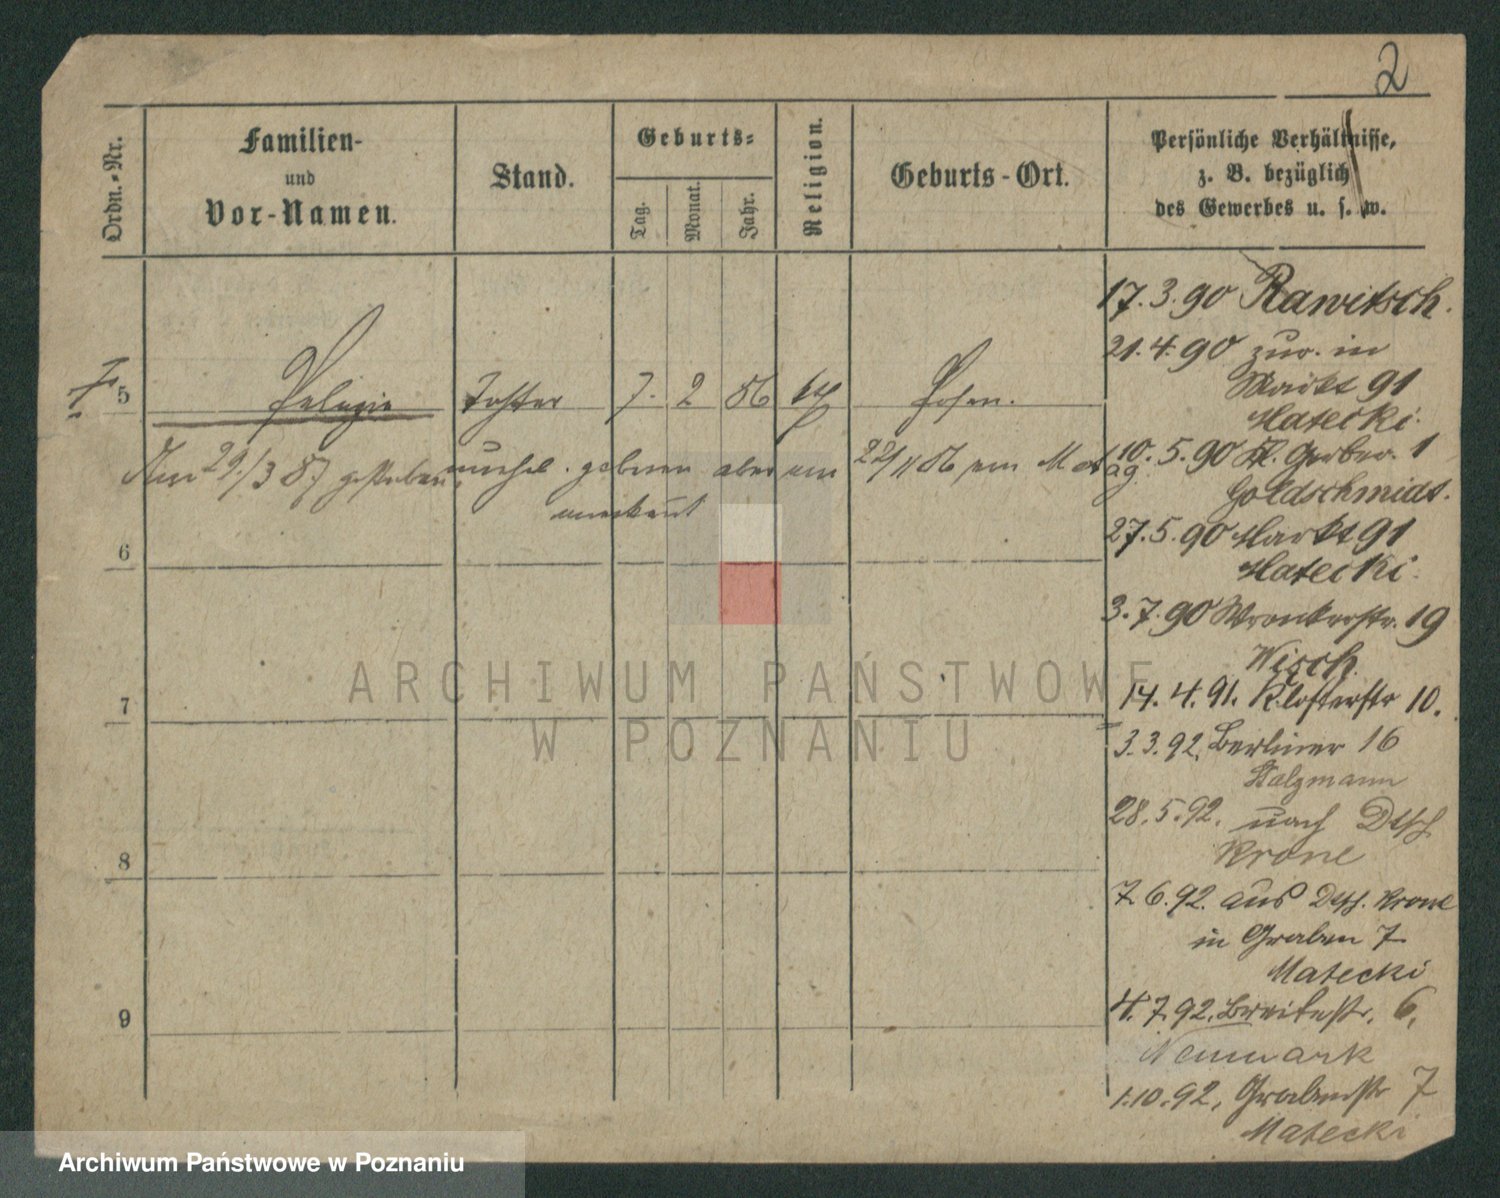 2
Ordn.-Nr.
Familien-
und
Vor-Namen.
Stand.
Geburts-
Tag.
Monat.
Jahr.
Religion.
Geburts-Ort.
Persönliche Verhältnisse,
z. B. bezüglich
des Gewerbes u. s. w.
5 Pelagia Tochter 7. 2 86 kth Posen.
Am 29/3 87 gestorben unehel. geboren aber am 22/11 86 vom
anerkannt
6
7
8
9
17.3.90 Rawitsch.
21.4.90 zur. in
Markt 91
Matecki.
10.5.90 Kl. Gerber. 1
Goldschmidt.
27.5.90 Markt 91
Matecki.
3.7.90 Wronkerstr. 19
Wisch.
14.4.91. Klosterstr 10.
3.3.92. Berliner 16
Salzmann
28.5.92. nach Dtsch
Krone
7.6.92. aus Dtsch. Krone
in Graben 7
Matecki
4.7.92. Breitestr. 6.
Neumark
1.10.92. Grabenstr 7
Matecki
ARCHIWUM PAŃSTWOWE
W POZNANIU
Archiwum Państwowe w Poznaniu